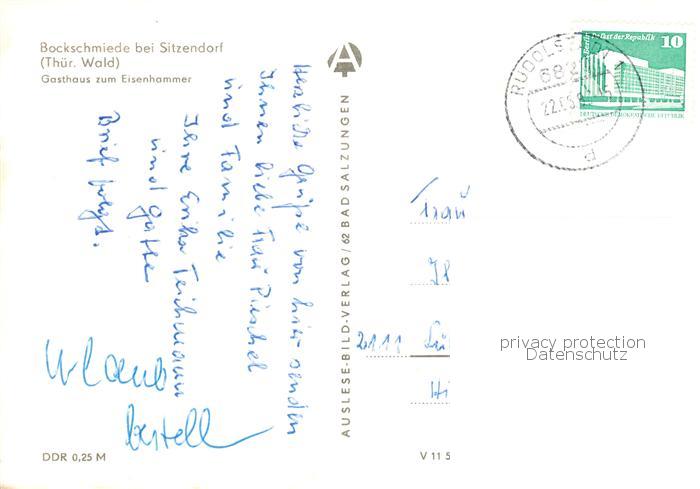 Bockschmiede bei Sitzendorf
(Thür. Wald)
Gasthaus zum Eisenhammer
Herzliche Grüße von hier senden
Ihnen liebe Frau Pieschel
und Familie
Ihre Erika Teichmann
und Gatte
Brief folgt.
Urlaub
bestell
DDR 0,25 M
AUSLESE-BILD-VERLAG / 62 BAD SALZUNGEN
V 11 5
Berlin, Palast der Republik 10
DEUTSCHE DEMOKRATISCHE REPUBLIK
RUDOLSTADT
682
Frau
2111
privacy protection
Datenschutz